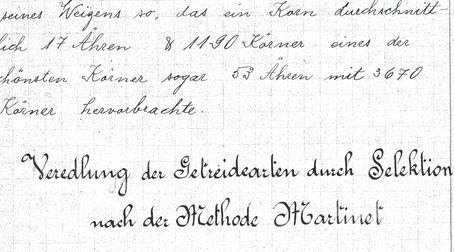 seines Weizens so, das ein Korn durchschnitt-
lich 17 Ähren & 1190 Körner eines der
chönsten Körner sogar 53 Ähren mit 3670
Körner hervorbrachte.
Veredlung der Getreidearten durch Selektion
nach der Methode Martinet